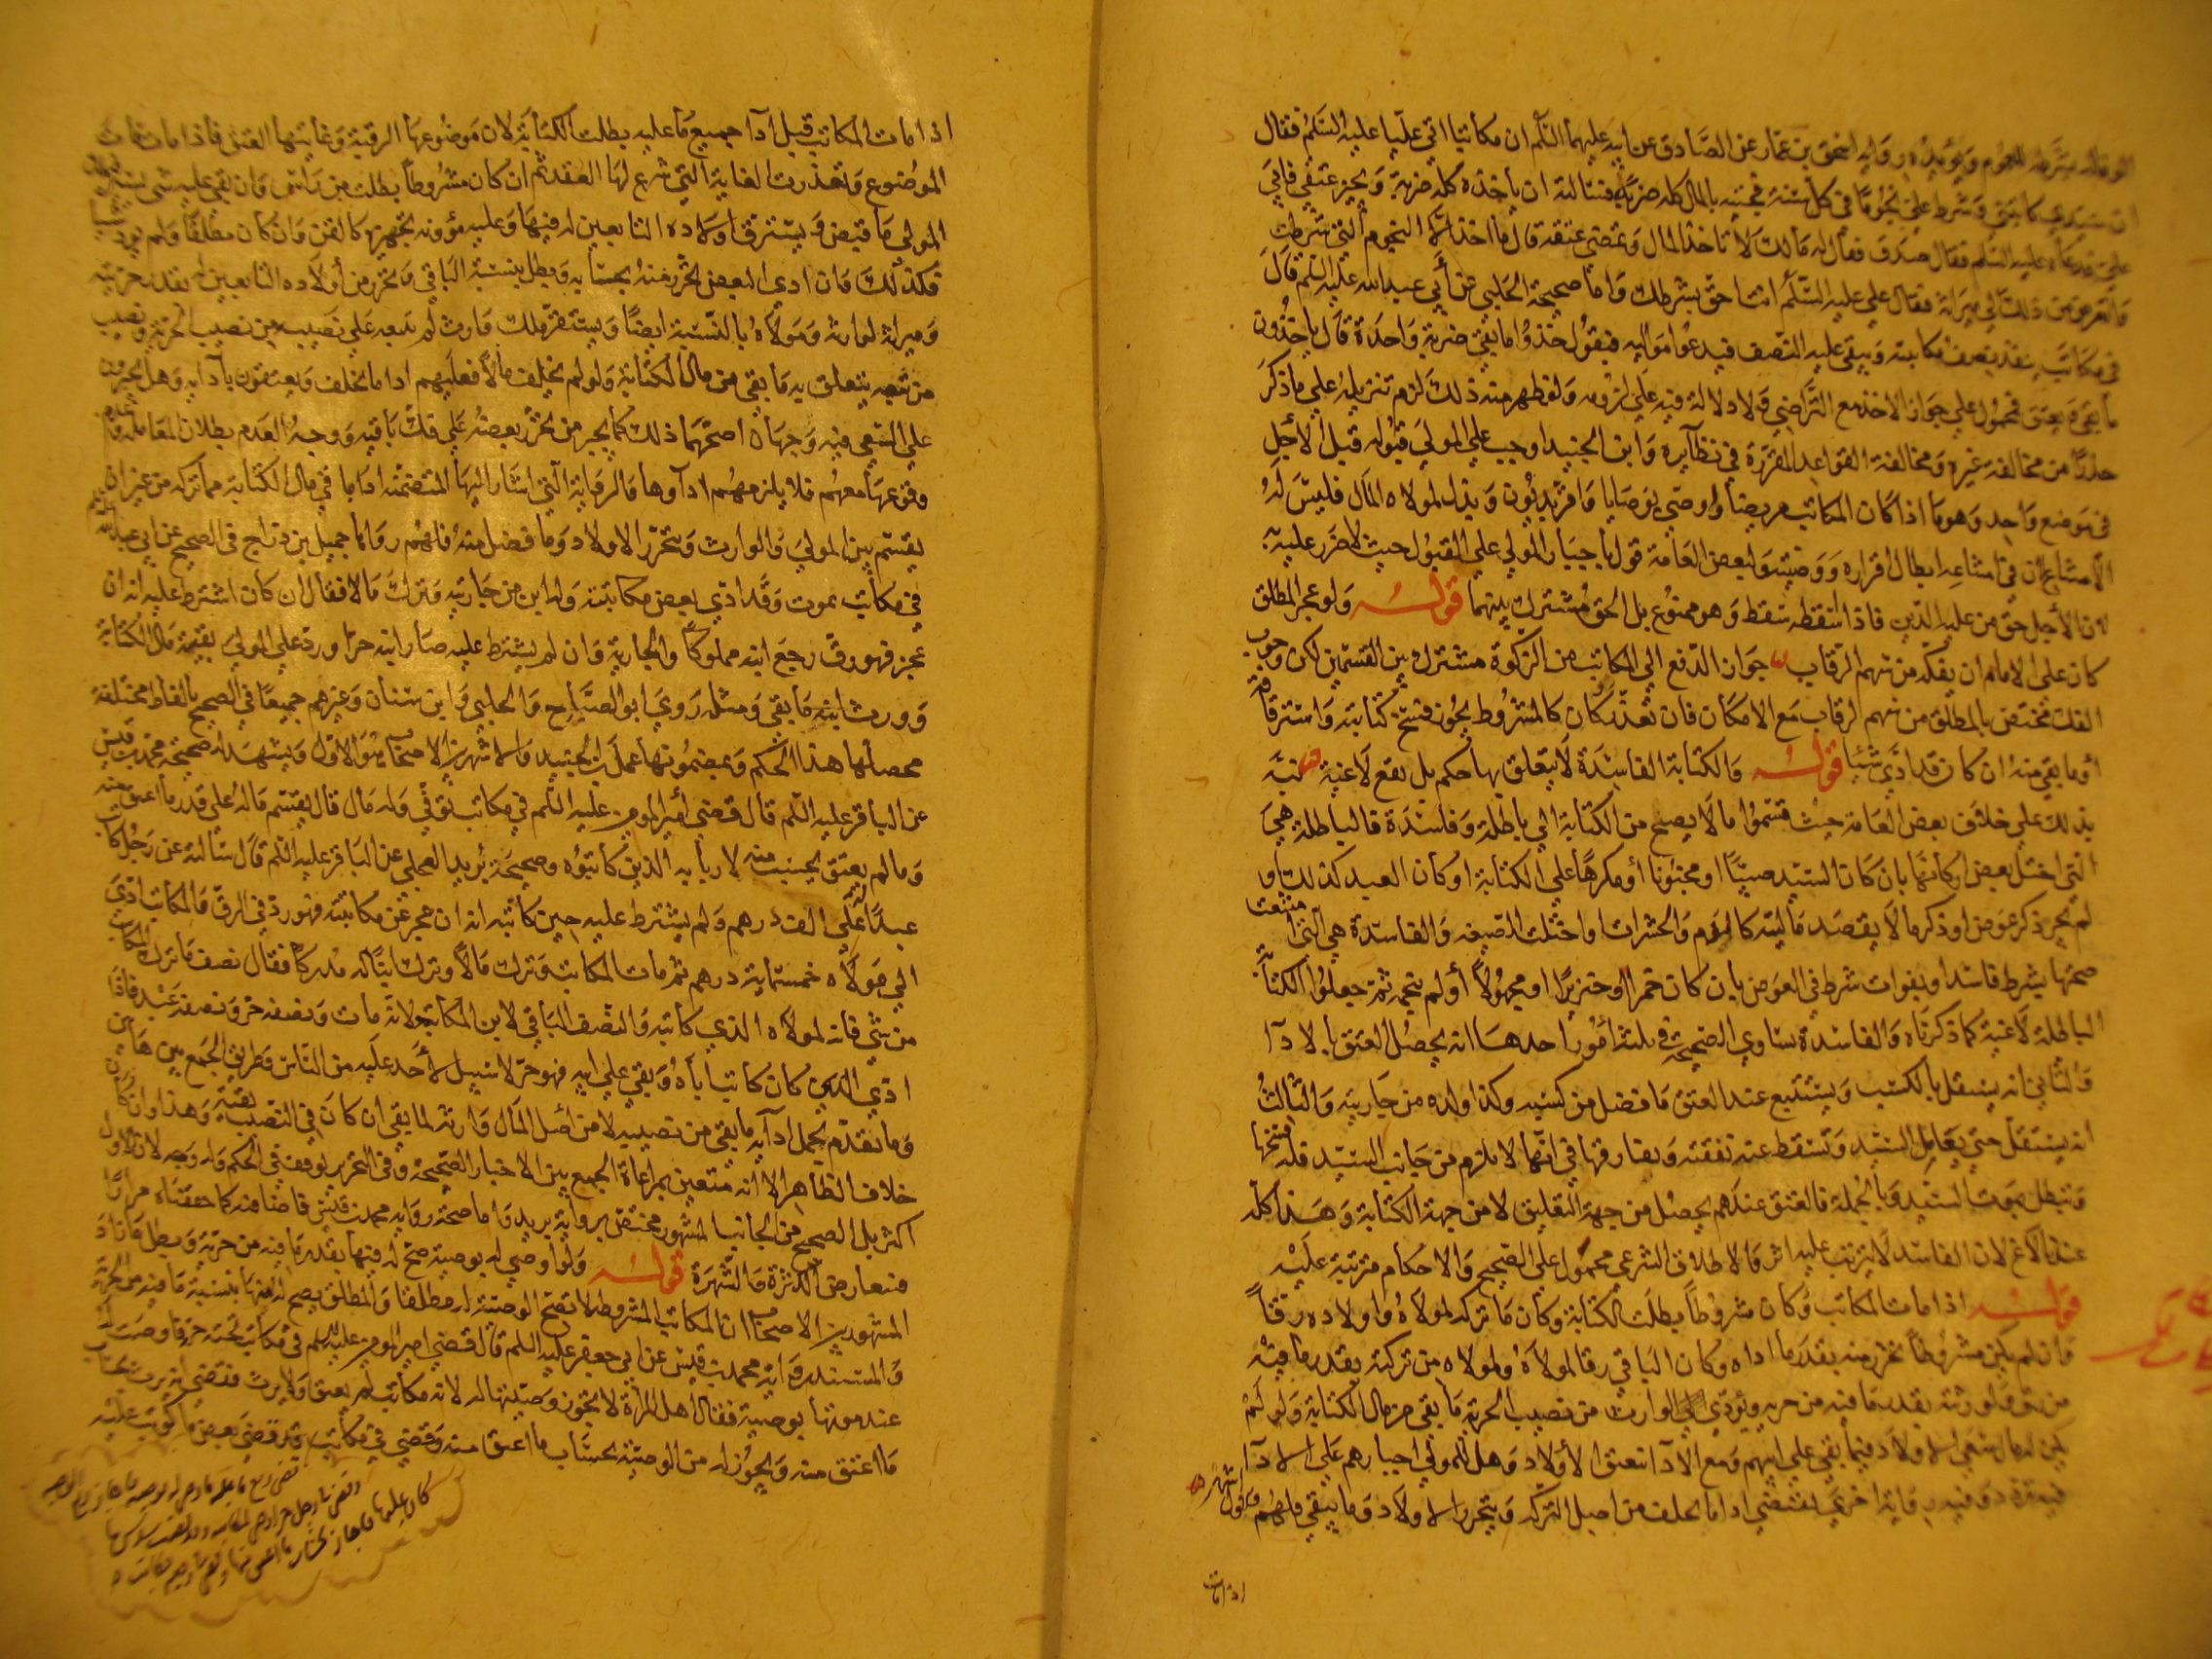 الوفاء بشرطه للعموم ويؤيده رواية اسحق بن عمار عن الصادق عن ابيه عليهما السلم ان مكاتبا اتى عليا عليه السلم فقال
ان سيدي كاتبني وشرط علي نجوما في كل سنة فجئته بالمال كله ضربة فسالته ان ياخذه كله ضربة ويجيز عتقي فابى
علي فدعاه عليه السلم فقال صدق فقال له مالك لا تاخذ المال وتمضي عتقه قال ما اخذ الا النجوم التي شرطت
واتعرض من ذلك الى ميراثه فقال علي عليه السلم انت احق بشرطك واما صحيحة الحلبي عن أبي عبد الله عليه السلم قال
في مكاتب ينقد نصف مكاتبته ويبقى عليه النصف فيدعوا مواليه فيقول خذوا ما بقي ضربة واحدة قال ياخذون
ما بقي ويعتق فمحمول علي جواز الاخذ مع التراضي ولا دلالة فيه على لزومه ولو ظهر منه ذلك لزم تنزيله علي ما ذكر
حذرا من مخالفة غيره ومخالفة القواعد المقررة في نظايره وابن الجنيد اوجب على المولى قبوله قبل الأجل
في موضع واحد وهو ما اذا كان المكاتب مريضا واوصي بوصايا واقر بديون وبذل لمولاه المال فليس له
الامتناع لان في امتناعه ابطال اقراره ووصيته ولبعض العامة قول باجبار المولي علي القبول حيث لا ضرر عليه
لان الأجل حق من عليه الدين فاذا اسقطه سقط وهو ممنوع بل الحق مشترك بينهما قوله ولو عجز المطلق
كان على الامام ان يفكه من سهم الرقاب جواز الدفع الي المكاتب من الزكوة مشترك بين القسمين لكن وجوب
الفك مختص بالمطلق من سهم الرقاب مع الامكان فان تعذر كان كالمشروط يجوز فسخ كتابته واسترقاقه
أو ما بقي منه ان كان قد ادى شيئا قوله والكتابة الفاسدة لا يتعلق بها حكم بل يقع لاغية نبه
بذلك علي خلاف بعض العامة حيث قسموا ما لا يصح من الكتابة الي باطلة وفاسدة فالباطلة هي
التي اختل بعض اركانها بان كان السيد صبيا او مجنونا أو مكرها علي الكتابة او كان العبد كذلك أو
لم يجر ذكر عوض او ذكر ما لا يقصد ماليته كالدم والحشرات او اختلت الصيغه والفاسدة هي التي امتنعت
صحتها بشرط فاسد او بفوات شرط في العوض بان كان خمرا او خنزيرا او مجهولا أو لم ينجمه ثم جعلوا الكتابة
الباطلة لاغية كما ذكرناه والفاسدة تساوي الصحيحة في ثلثة أمور احدها انه يحصل العتق بالادآ
والثاني انه يستقل بالكسب ويستتبع عند العتق ما فضل من كسبه وكذا ولده من جاريته والثالث
انه يستقل حتى يعامل السيد وتسقط عنه نفقته ويفارقها في انها لا يلزم من جانب السيد فله فسخها
وتبطل بموت السيد وبالجملة فالعتق عندهم يحصل من جهة التعليق لا من جهة الكتابة وهذا كله
عندنا لاغ لان الفاسد لا يترتب عليه اثر والاطلاق الشرعي محمول علي الصحيح والاحكام مترتبة عليه
قوله اذا مات المكاتب وكان مشروطا بطلت الكتابة وكان ما تركه لمولاه واولاده رقا
وان لم يكن مشروطا تحرر منه بقدر ما اداه وكان الباقي رقا لمولاه ولمولاه من تركته بقدر ما فيه
من رق ولورثته بقدر ما فيه من حرية ويؤدي الوارث من نصيب الحرية ما بقي من مال الكتابة ولو لم
يكن له مال سعى الاولاد فيما بقي علي ابيهم ومع الادآ تنعتق الأولاد وهل للمولي اجبارهم على الادآ
فيه تردد وفيه رواية اخرى تقتضي ادا ما تخلف من اصل التركة ويتحرر الاولاد وما يبقي فلهم والاول اشهر
اذا مات
اذا مات المكاتب قبل ادآ جميع ما عليه بطلت الكتابة لان موضوعها الرقبة وغايتها العتق فاذا مات فات
الموضوع وتعذرت الغاية التي شرع لها العقد ثم ان كان مشروطا بطلت من راس وان بقي عليه شي يسير
المولى ما قبض ويسترق اولاده التابعين له فيها وعليه مؤونة تجهيزه كالقن وان كان مطلقا ولم يود شيئا
فكذلك وان ادى البعض تحرر منه بحسابه وبطل بنسبة الباقي وتحرر من أولاده التابعين له بقدر حريته
وميراثه لوارثه ومولاه بالنسبة ايضا ويستقر ملك وارث لم يتبعه علي نصيبه من نصيب الحرية ونصيب
من تبعه يتعلق به ما بقي من مال الكتابة ولو لم يخلف مالا فعليهم ادا ما تخلف ويعتقون بادآيه وهل يجبرون
علي السعي فيه وجهان اصحهما ذلك كما يجبر من تحرر بعضه علي فك باقيه ووجه العدم بطلان المعاملة وعدم
وقوعها معهم فلا يلزمهم ادآوها والرواية التي اشار اليها المتضمنة ادا باقي مال الكتابة مما تركه من غير ان
يقسم بين المولى والوارث ويتحرر الاولاد وما فضل منه فلهم رواها جميل بن دراج في الصحيح عن ابي عبد الله
في مكاتب يموت وقد ادي بعض مكاتبته وله ابن من جاريته وترك مالا فقال ان كان اشترط عليه انه ان
عجز فهو رق رجع ابنه مملوكا والجارية وان لم يشترط عليه صار ابنه حرا ورد علي المولى بقية مال الكتابة
وورث ابنه ما بقي ومثله روى ابو الصباح والحلبي وابن سنان وغيرهم جميعا في الصحيح بالفاظ مختلفة
محصلها هذا الحكم وبمضمونها عمل ابن الجنيد والاشهر بين الاصحاب هو الاول ويشهد له صحيحة محمد بن قيس
عن الباقر عليه السلم قال قضى أمير المومنين عليه السلم في مكاتب توفي وله مال قال يقسم ماله على قدر ما اعتق منه
وما لم يعتق يحسب منه لاربابه الذين كاتبوه وصحيحة بريد العجلي عن الباقر عليه السلم قال سالته عن رجل كاتب
عبدا على الف درهم ولم يشترط عليه حين كاتبه انه ان عجز عن مكاتبته فهو رد في الرق والمكاتب ادى
الي مولاه خمسماية درهم ثم مات المكاتب وترك مالا وترك ابنا له مدركا فقال نصف ما ترك المكاتب
من شي فانه لمولاه الذي كاتبه والنصف الباقي لابن المكاتب لانه مات ونصفه حر ونصفه عبد فاذا
ادي الذي كان كاتب أباه وبقي علي ابيه فهو حر لا سبيل لأحد عليه من الناس وطريق الجمع بين هاتين
وما تقدم يحمل ادآيه ما بقي من نصيبه لا من أصل المال وارثه لما بقي ان كان في النصيب بقية وهذا وان كان
خلاف الظاهر الا انه متعين لمراعاة الجمع بين الاخبار الصحيحة وفي التحرير توقف في الحكم وله وجه لان الاول
اكثر بل الصحيح من الجانب المشهور مختص برواية بريد واما صحة رواية محمد بن قيس فاضافية كما حققناه مرارا
فتعارض الكثرة والشهرة قوله ولو اوصي له بوصية صح له فيها بقدر ما فيه من حرية وبطل ما زاد
المشهور بين الاصحاب ان المكاتب المشروط لا تصح الوصية له مطلقا والمطلق يصح له منها بنسبة ما فيه من الحرية
والمستند رواية محمد بن قيس عن ابي جعفر عليه السلم قال قضى امير المومنين عليه السلم في مكاتب تحته حرة فاوصت له
عند موتها بوصية فقال اهل المراة لا يجوز وصيتها له لانه مكاتب لم يعتق ولا يرث فقضى انه يرث بحساب
ما اعتق منه ويجوز له من الوصية بحساب ما اعتق منه وقضي في مكاتب قد قضى بعض ما كوتب عليه